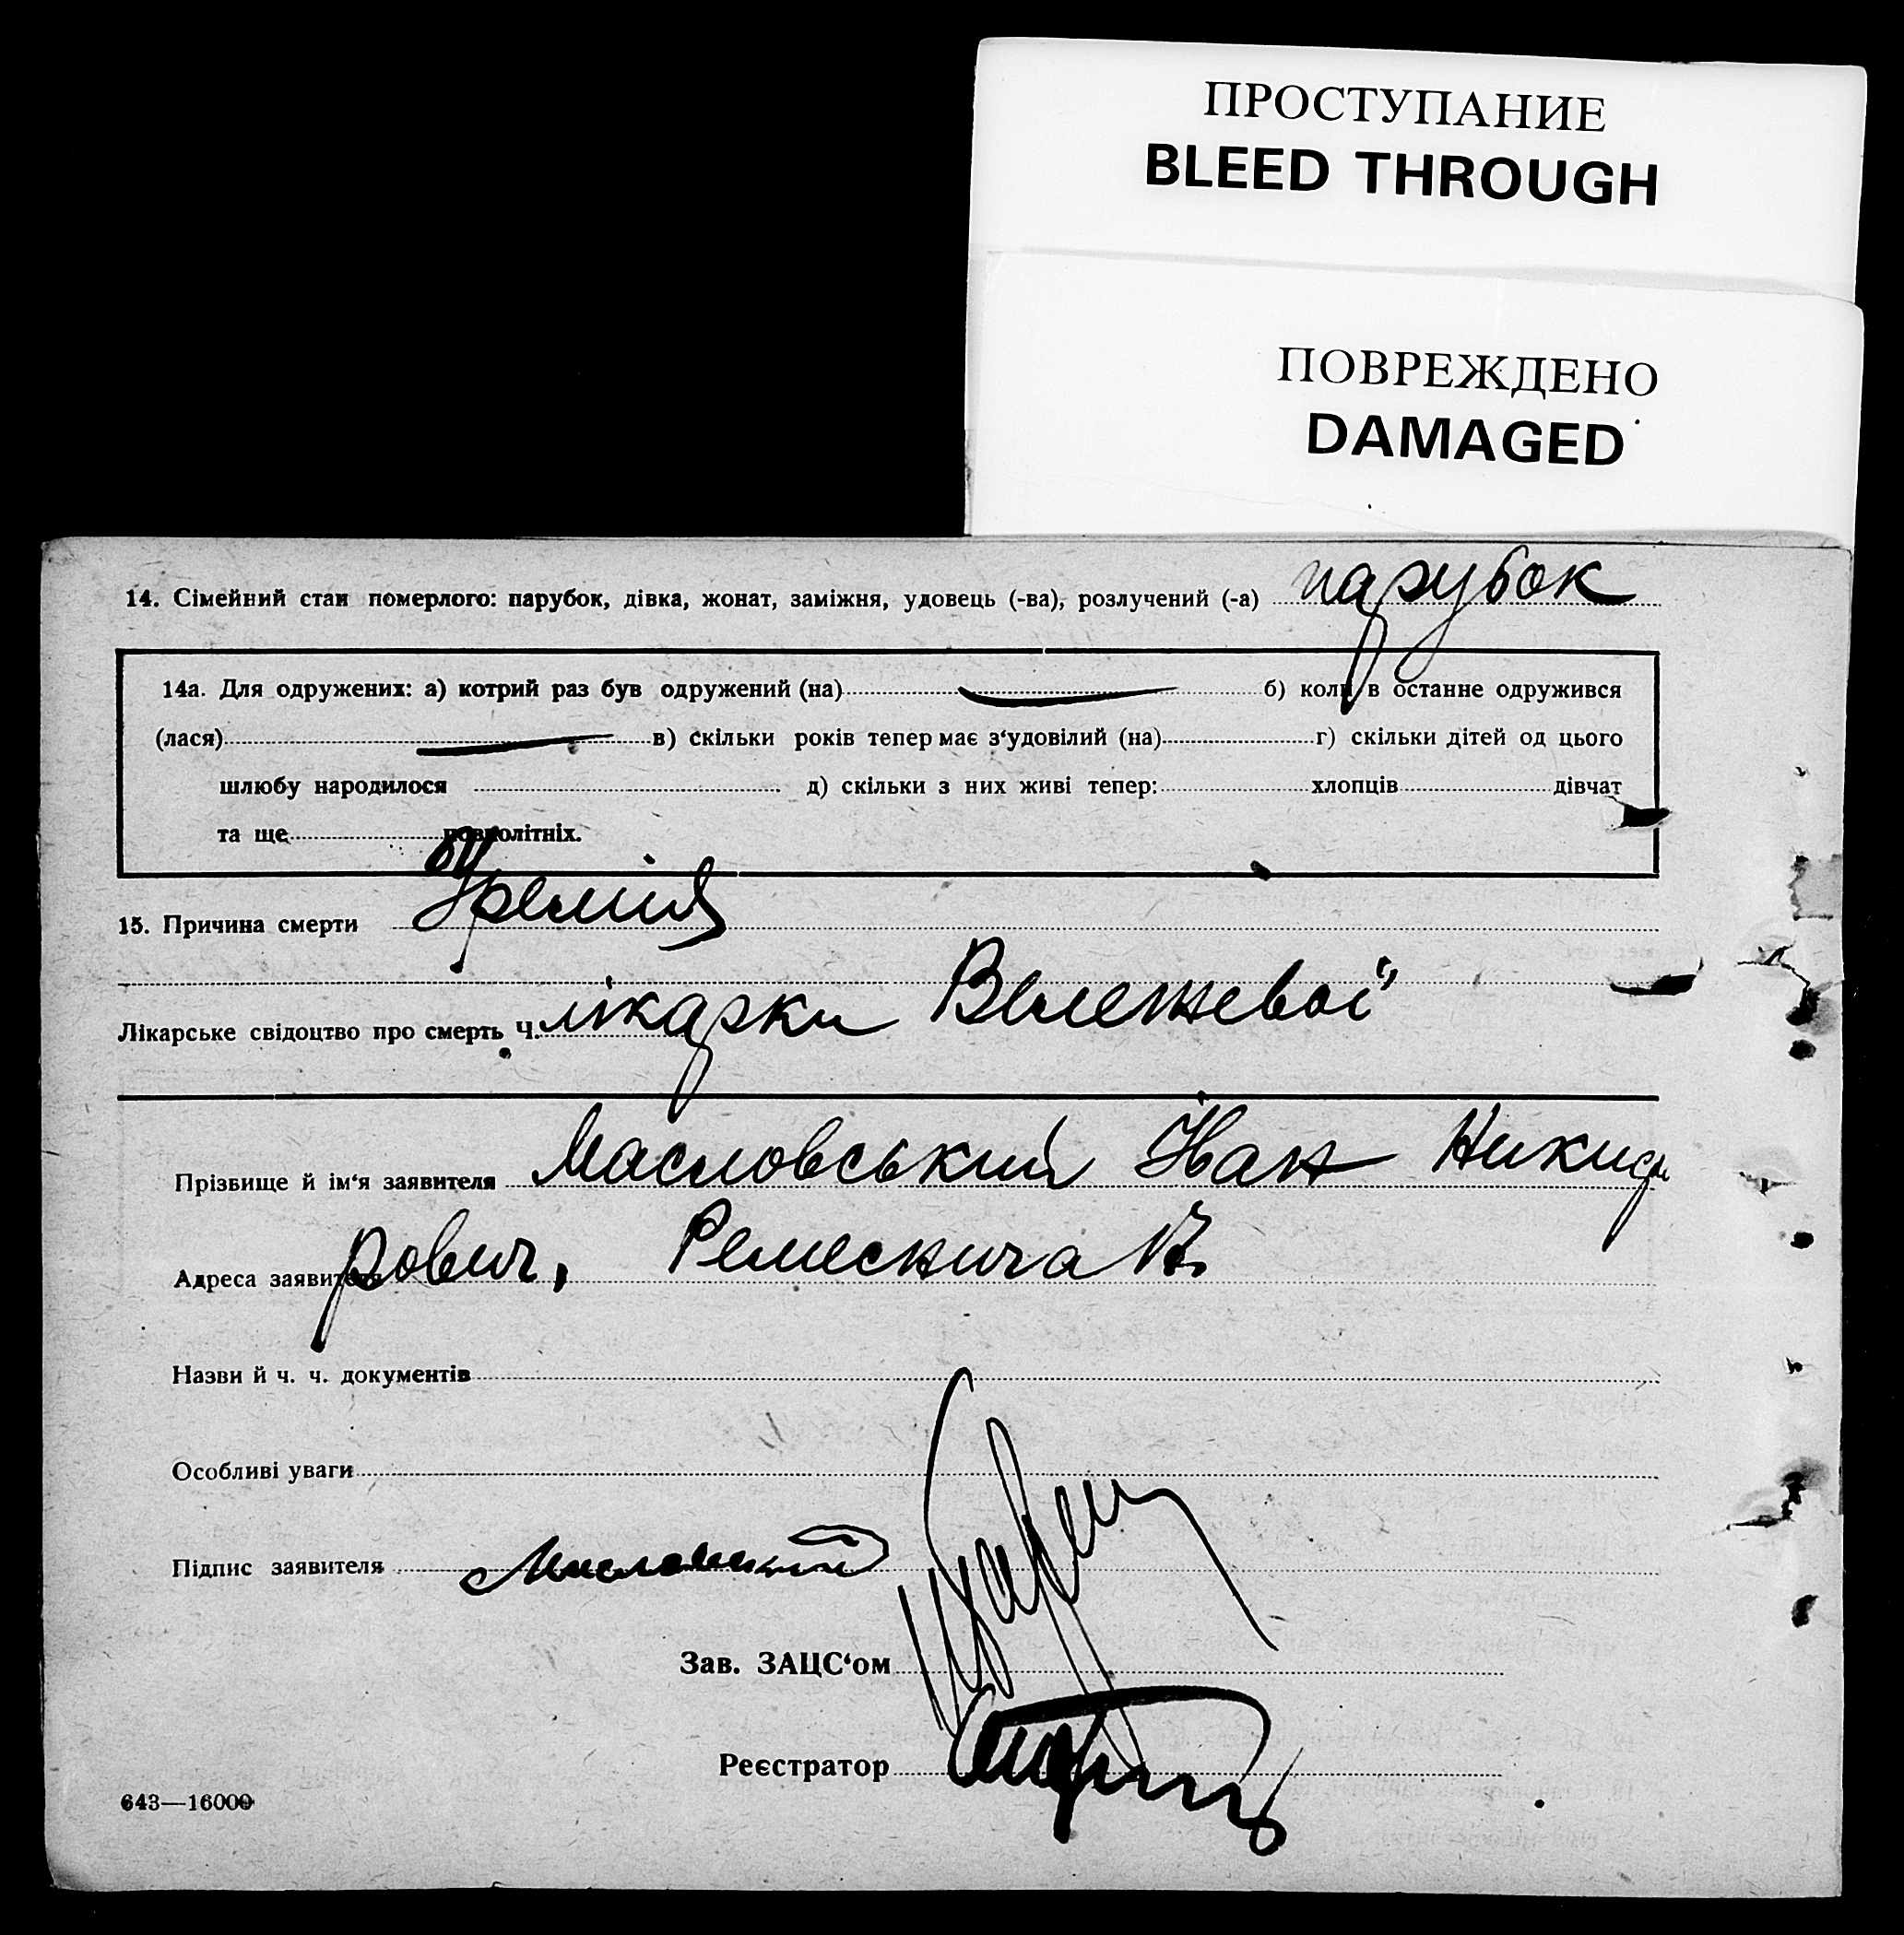 ПРОСТУПАНИЕ
BLEED THROUGH
ПОВРЕЖДЕНО
DAMAGED
14. Сімейний стан померлого: парубок, дівка, жонат, заміжня, удовець (-ва), розлучений (-а) парубок
14а. Для одружених: а) котрий раз був одружений (на) б) коли в останне одружився
(лася) в) скільки років тепер має з‘удовілий (на) г) скільки дітей од цього
шлюбу народилося д) скільки з них живі тепер: хлопців дівчат
та ще повнолітніх.
15. Причина смерти Уремія
Лікарське свідоцтво про смерть Ч. лікарки
Прізвище й ім‘я заявителя Масловський Іван Никиф
Адреса заявителя рович,
Назви й ч. ч. документів
Особливі уваги
Підпис заявителя
Зав. ЗАЦС‘ом
Реєстратор
643—16000